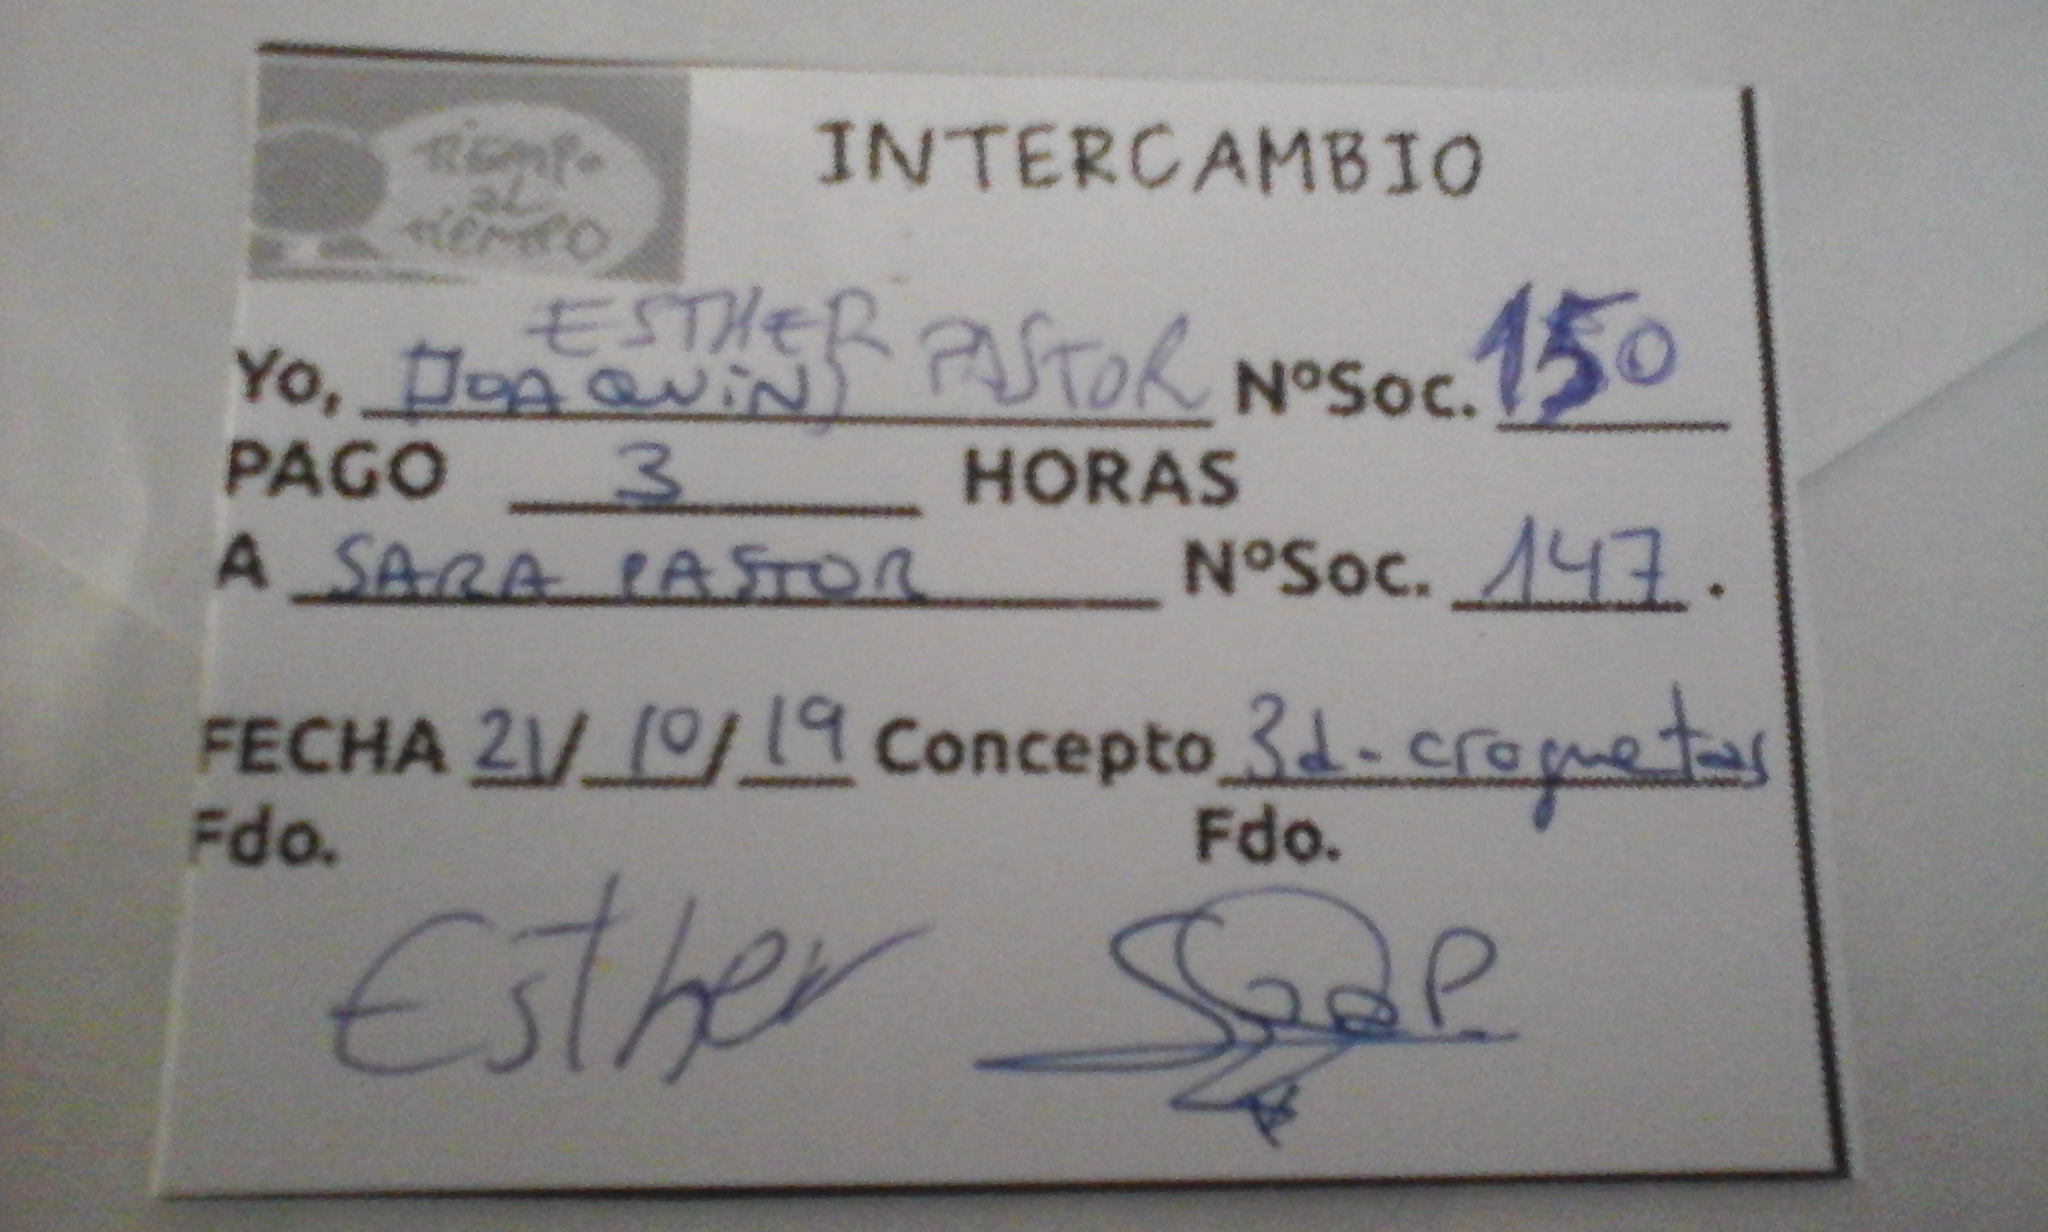 TIEMPO
AL
TIEMPO
INTERCAMBIO
ESTHER PASTOR
Yo, JOAQUIN NºSoc. 150
PAGO 3 HORAS
A SARA PASTOR NºSoc. 147.
FECHA 21/10/19 Concepto 3d-croquetas
Fdo. Fdo.
Esther